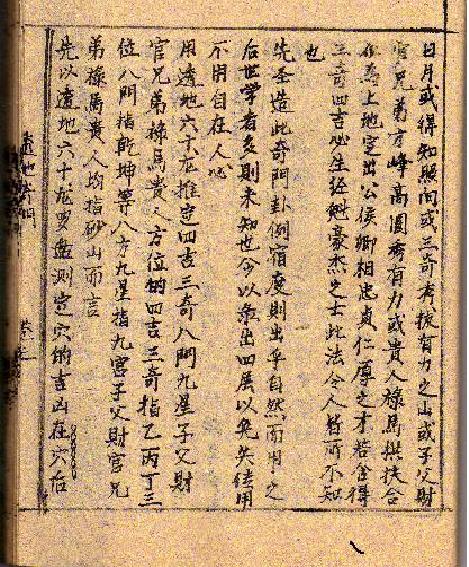 日月或得知照向或三奇秀拔有力之山或子父財
官兄弟方峰高圓秀有力或貴人祿馬拱扶合
在馬上地定出公侯卿相忠貞仁厚之才若舍得
三奇四吉必生經魁豪杰之士此法令人皆所不知
也
先圣造此奇門卦例宿度則出乎自然而用之
后世学者多則未知也今以瀉出四層以免失传用
不用自在人心
用透地六十龙推定四吉三奇八門九星子父財
官兄弟祿馬貴人方位的四吉三奇指乙丙丁三
位八門指乾坤等八方九星指九宮子父財官兄
弟祿馬貴人均指砂山而言
先以透地六十龙罗盘测定穴的吉凶在穴后
透地奇門